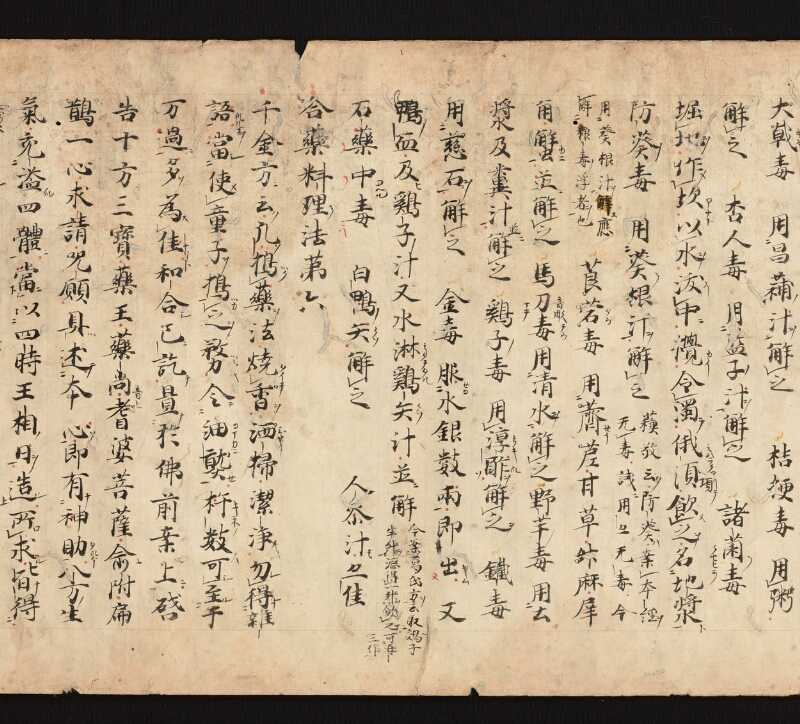 大戟毒　用昌蒲汁解之　桔梗毒　用粥
解之　杏人毒　用藍子汁解之　諸菌毒
堀地作坎以水沃中攪令濁俄頃飲之名地漿
防葵毒　用葵根汁解之　蘇敬云防葵案本經
无毒試用之无毒今
用葵根汁解應
解狼毒浮者也
莨菪毒　用薺苨甘草升麻犀
角蟹並解之　馬刀毒用清水解之野芋毒用土
漿及糞汁解之　鷄子毒　用淳酢解之　鐵毒
用慈石解之　金毒　服水銀數兩即出　又
鴨血及鷄子汁又水淋鷄矢汁並解　今案葛氏方云取鷄子
石藥中毒　白鴨矢解之　人參汁之佳
合藥料理法第六
千金方云凡搗藥法燒香洒掃潔淨勿得雜
語當使童子搗之務令細熟杵數可至千
万過多為佳和合已訖置於佛前案上啓
告十方三寶藥王藥尚耆婆菩薩俞附扁
鵲一心求請咒願具述本心即有神助八方生
氣充溢四體當以四時王相日造所求皆得